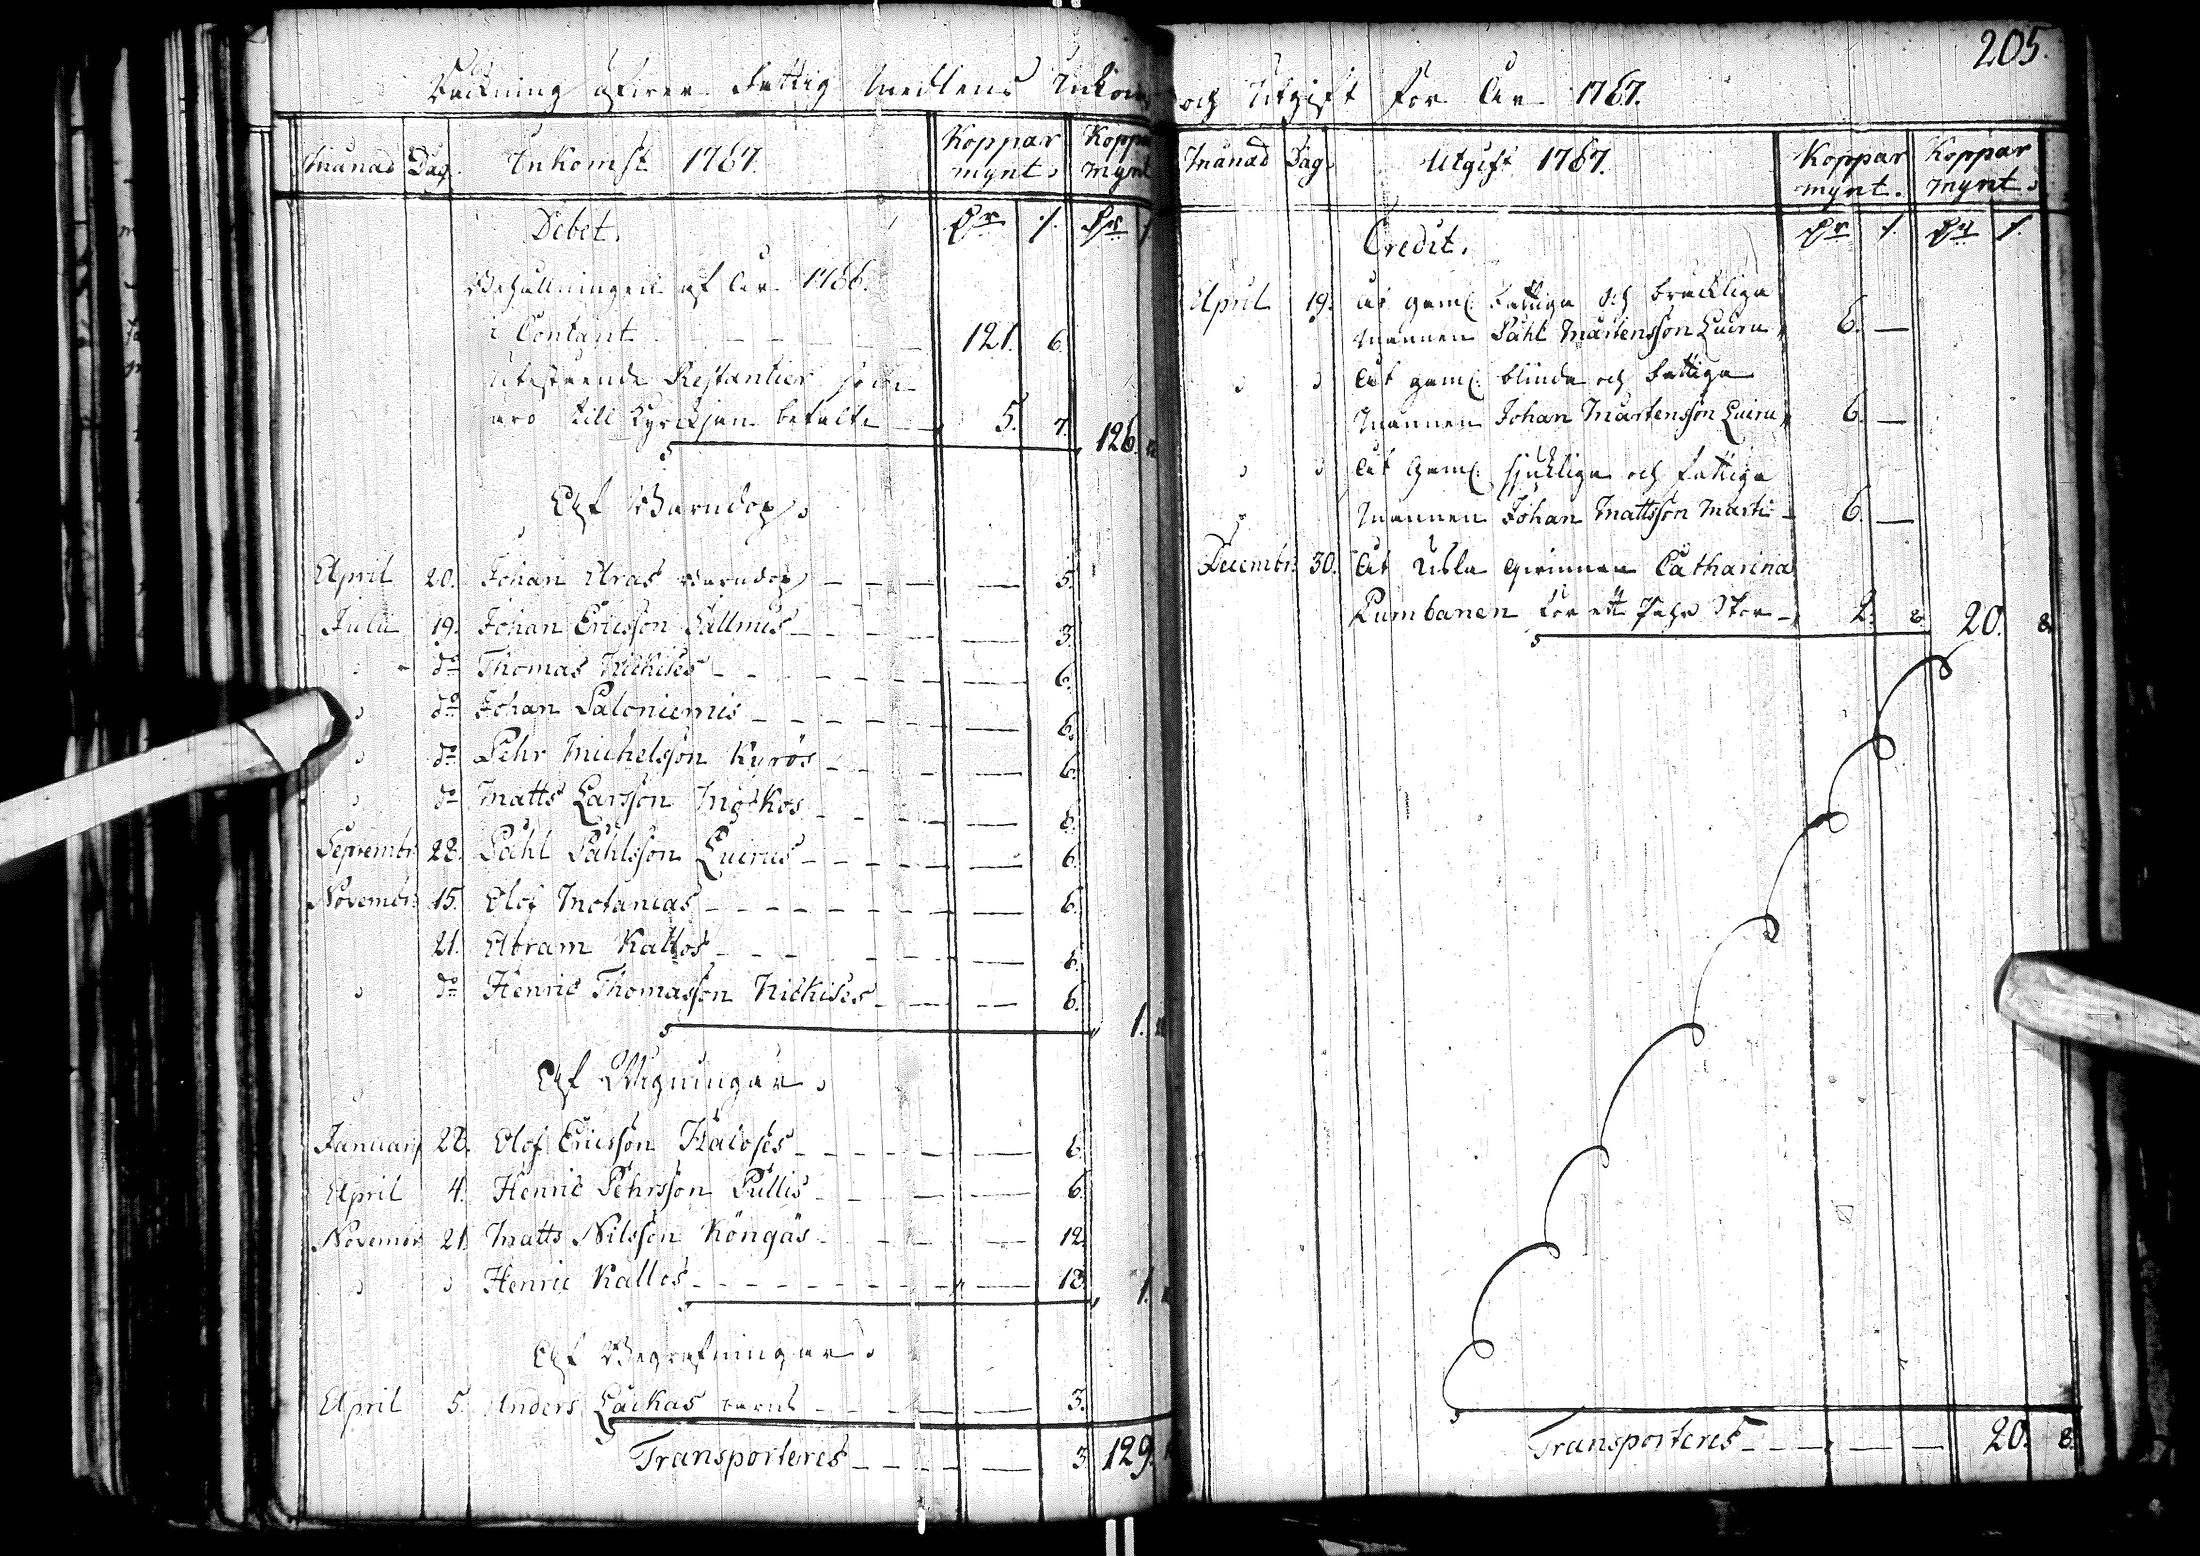 205.
Räkning öfwer Fattig Medlens Inkomst och Utgift för Året 1767.
Månad Dag. Inkomst 1767. Koppar mynt. Koppar mynt
Debet. Dr / Dr /
Behållningen af Året 1766.
i Contant 121. 6.
Utestående Restantier som
äro till Kyrckjan betalte 5. 7. 126.
Af Barndop.
April 20. Johan Aras Barndop 5.
Julii 19. Johan Ericsson Sallmus 3.
do Thomas Nickises 6.
do Johan Paloniemis 6.
do Pehr Michelsson Kyrös 6.
do Matts Larsson Mockos 6.
Septembr 28. Påhl Påhlsson Luirus 6.
Novembr. 15. Olof Motanias 6.
21. Abram Kallos 6.
do Henric Thomasson Nickises 6. 1.
Af Wigningar.
Januarj 28. Olof Ericsson 6.
April 4. Henric Pehrsson Pullis 6.
Novembr 21. Matts Nilsson Köngäs 12.
Henric Kallos 18. 1.
Af Begrafningar.
April 5. Anders Lackas barns 3.
Transporteres 3. 129.
Månad Dag. Utgift 1767. Koppar mynt. Koppar mynt.
Credit. Dr / Dr /
April 19. Åt gaml. fattiga och bräckliga
Mannen Påhl Mårtensson Luiru 6. —
Åt gaml. blinda och fattiga
Mannen Johan Mårtensson Luiru 6. —
Åt Gaml. sjukliga och fattiga
Mannen Johan Mattsson Marti 6. —
Decembr. 30. Åt usla Qwinnan Catharina
Pumbanen för ett Pahr Skor 2. 8. 20. 8.
Transporteres 20. 8.